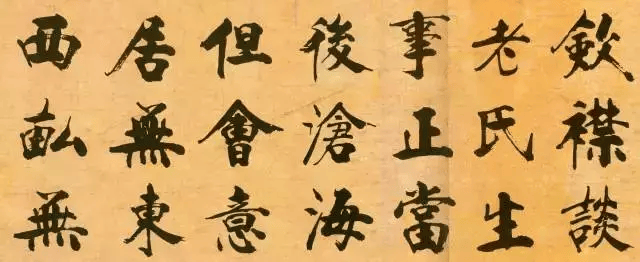 斂襟談
老氏生
事正當
後滄海
但會意
居無東
西畝無